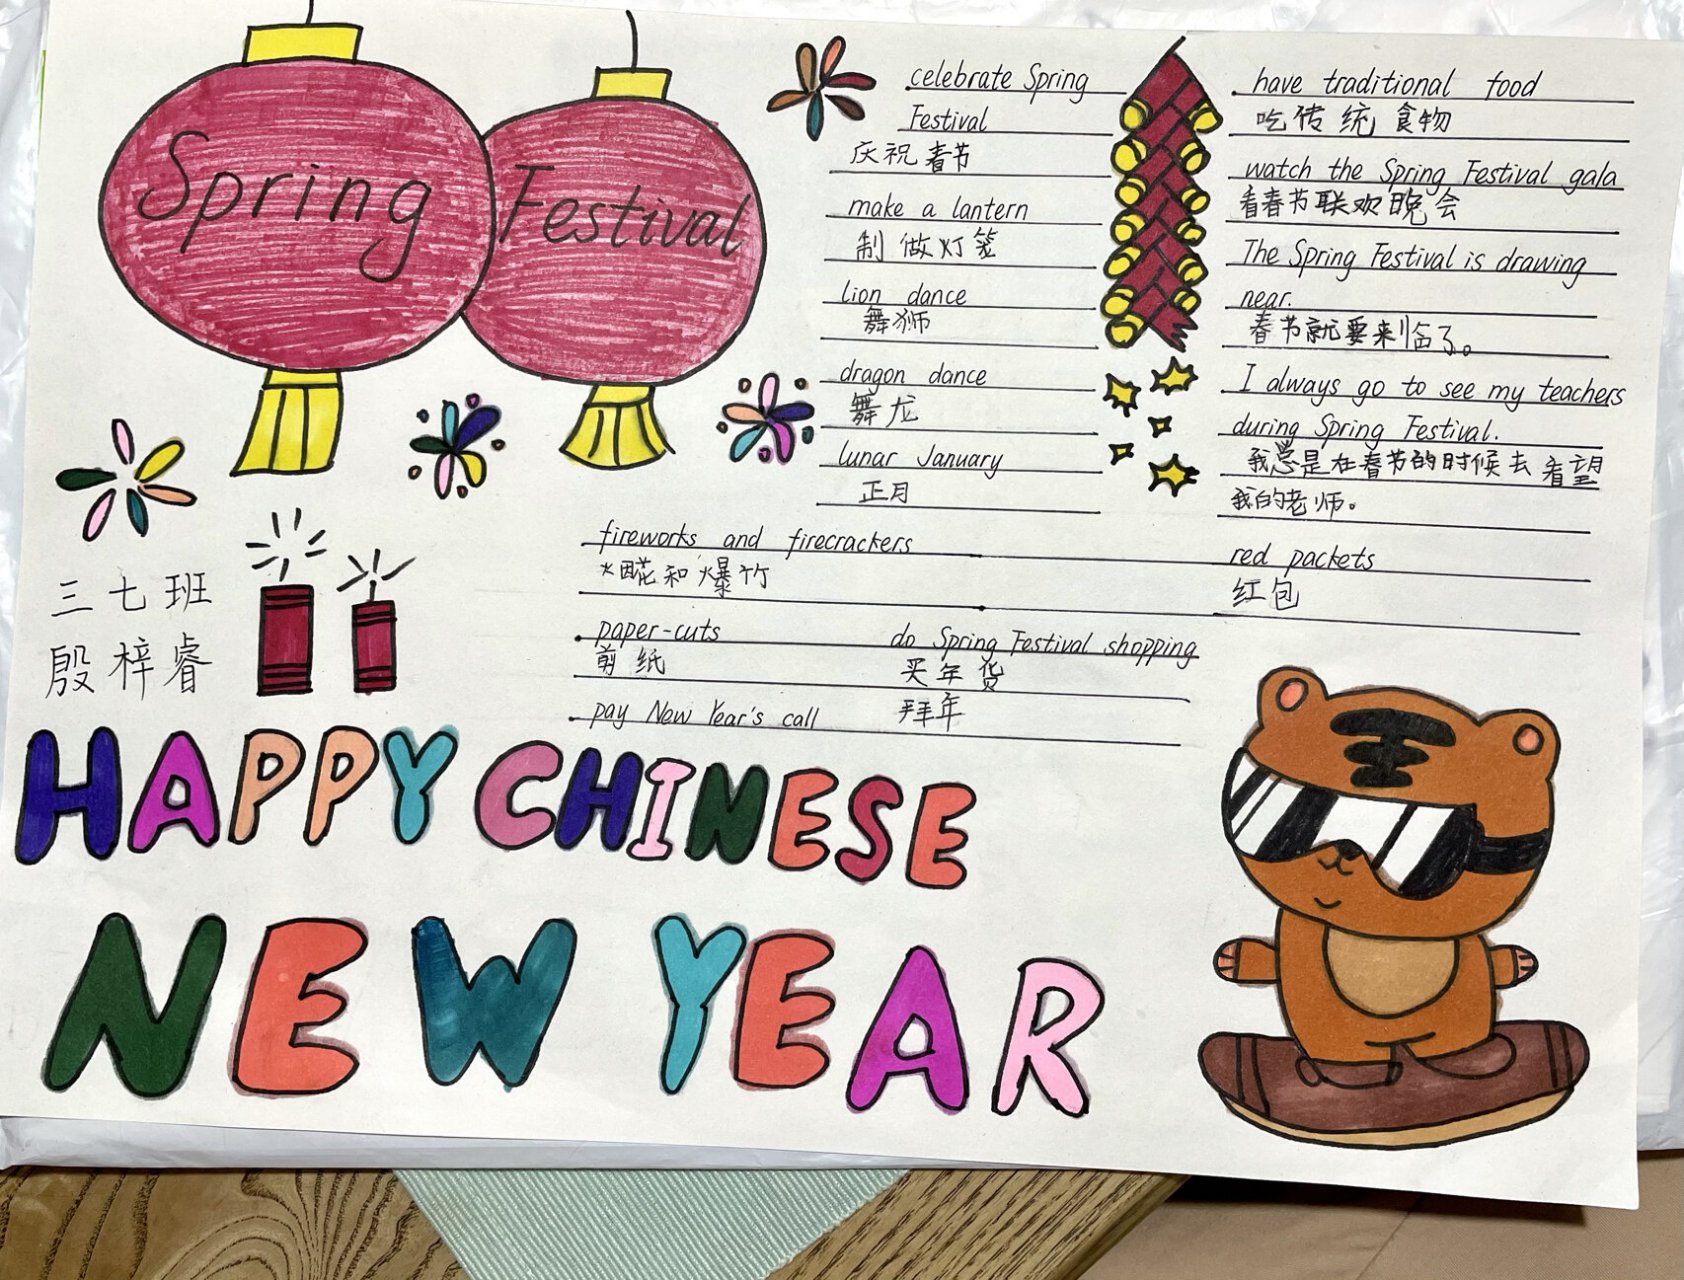 Spring Festival
celebrate Spring
Festival
庆祝春节
make a lantern
制做灯笼
lion dance
舞狮
dragon dance
舞龙
lunar January
正月
have traditional food
吃传统食物
watch the Spring Festival gala
看春节联欢晚会
The Spring Festival is drawing
near.
春节就要来临了。
I always go to see my teachers
during Spring Festival.
我总是在春节的时候去看望
我的老师。
fireworks and firecrackers
烟花和爆竹
red packets
红包
paper-cuts
剪纸
do Spring Festival shopping
买年货
pay New Year's call
拜年
三七班
殷梓睿
HAPPY CHINESE
NEW YEAR